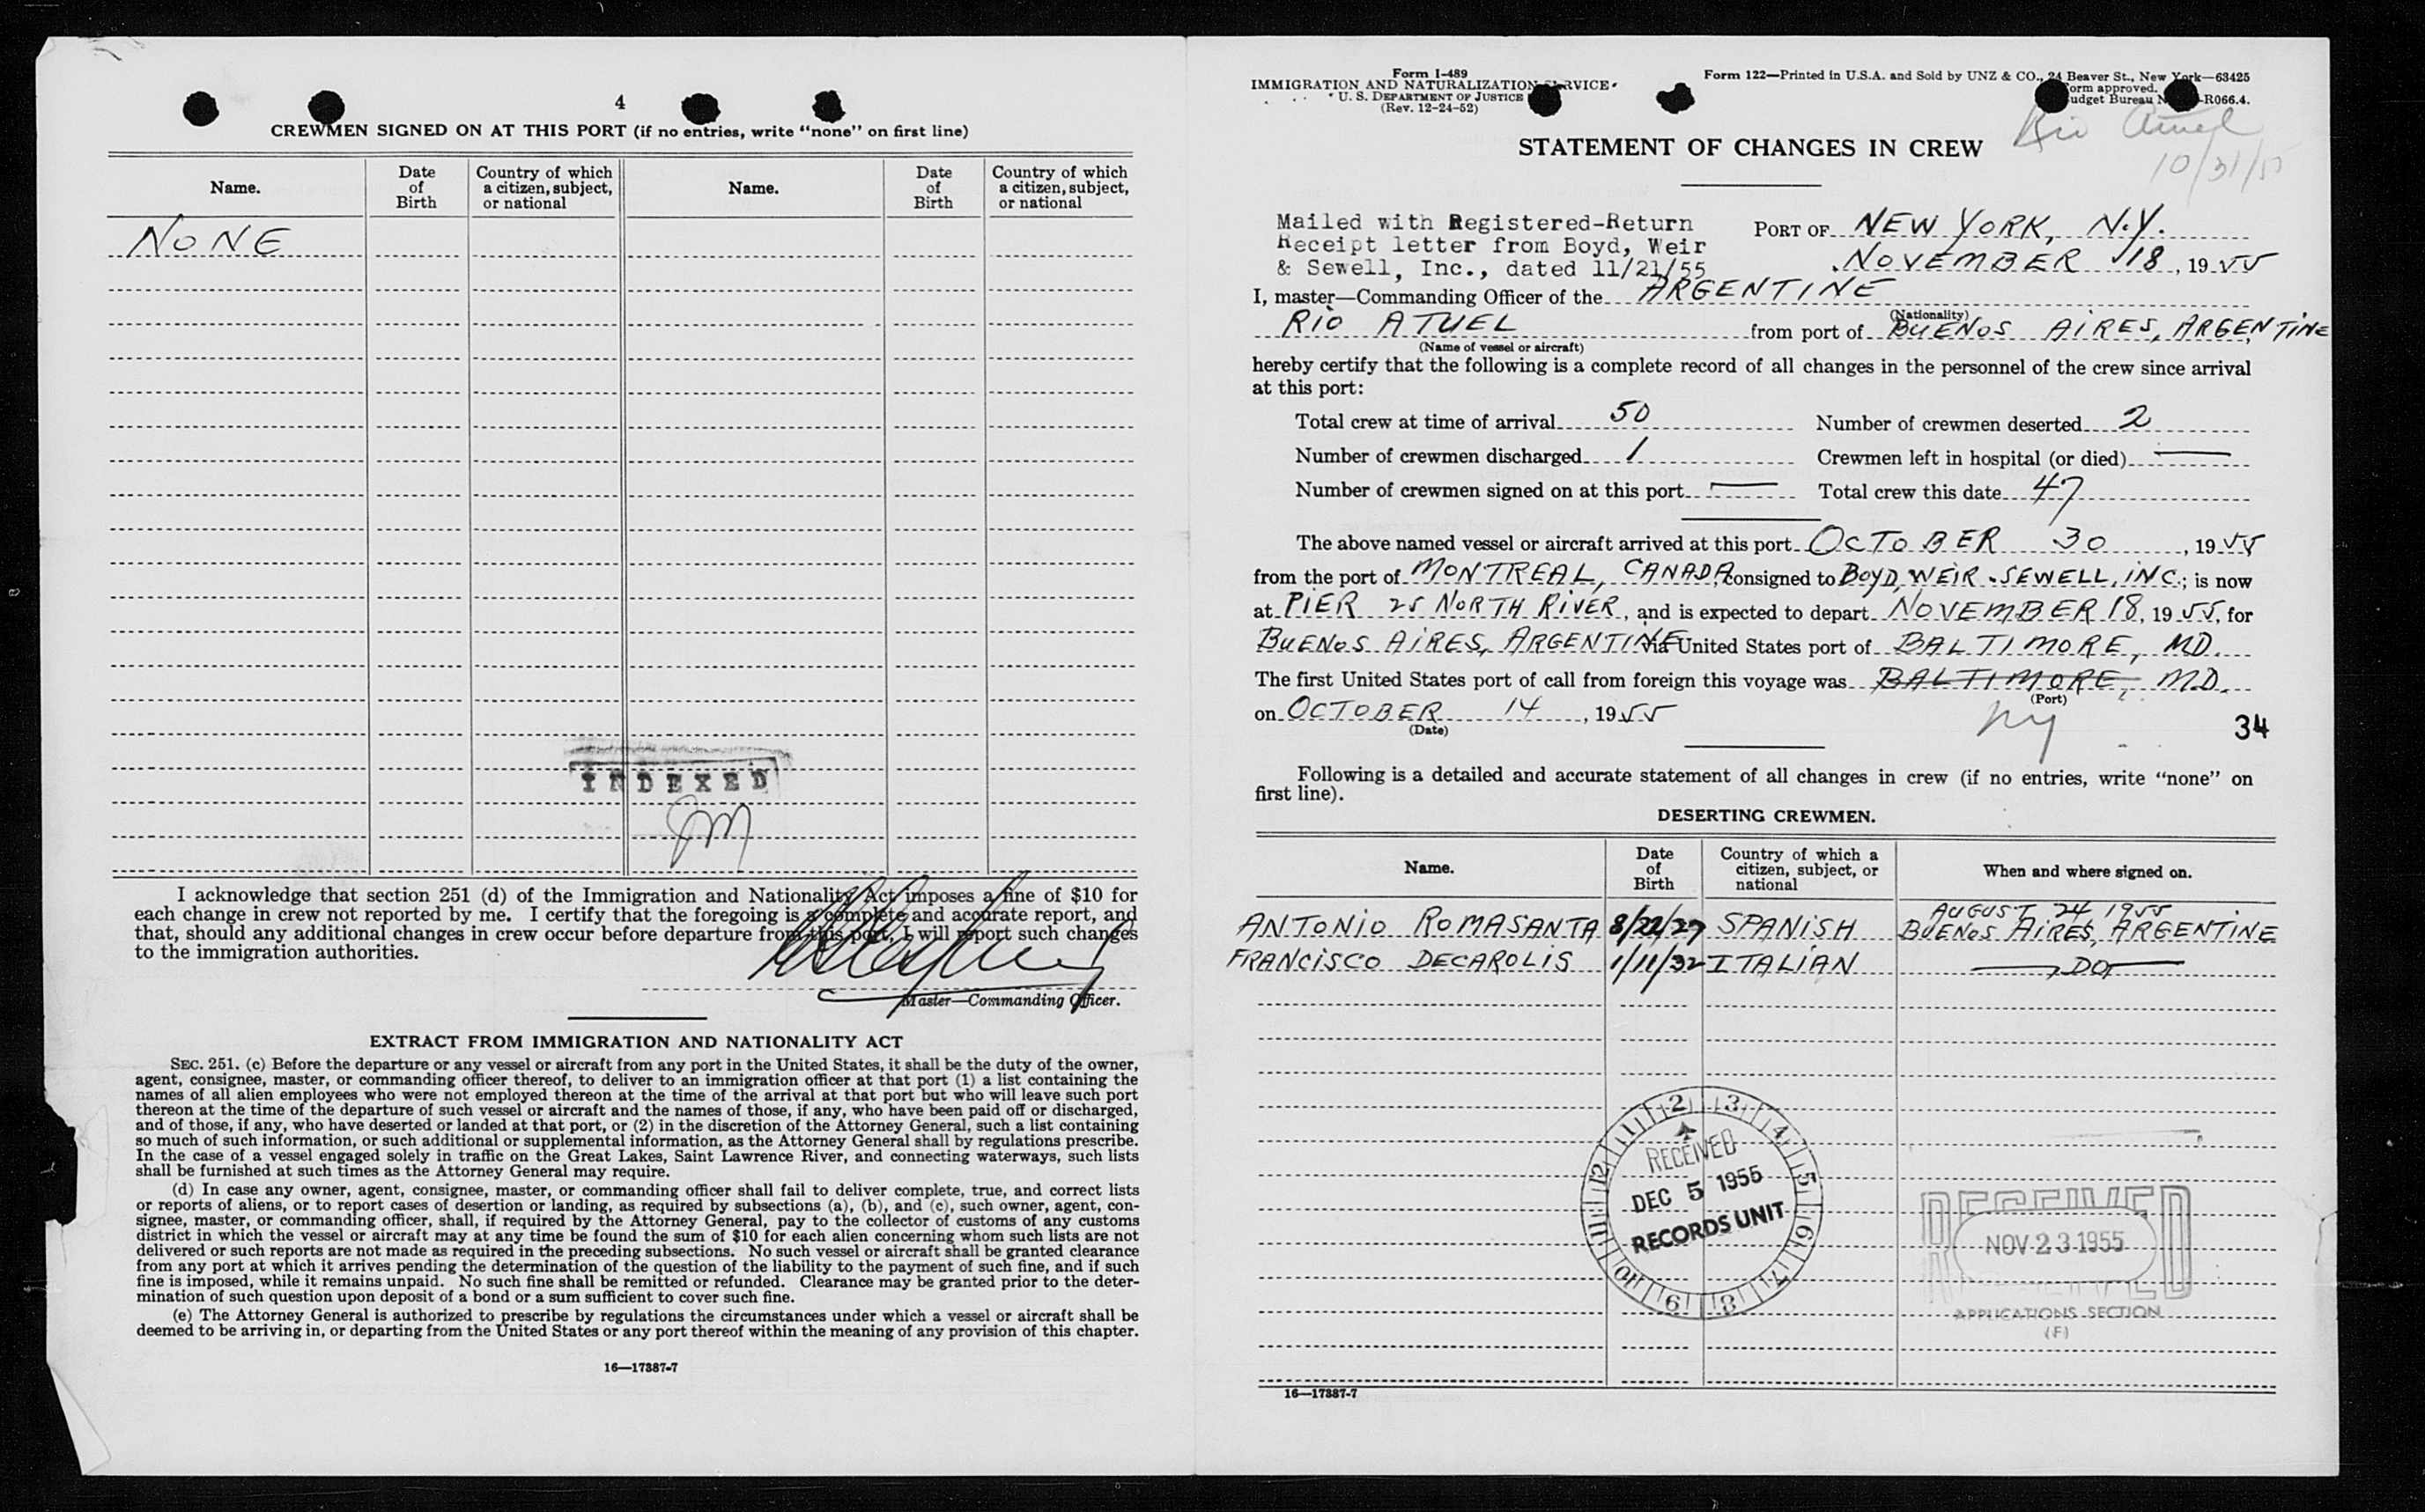 4
CREWMEN SIGNED ON AT THIS PORT (if no entries, write "none" on first line)
Name. Date of Birth Country of which a citizen, subject, or national Name. Date of Birth Country of which a citizen, subject, or national
NONE
INDEXED
JM
I acknowledge that section 251 (d) of the Immigration and Nationality Act imposes a fine of $10 for
each change in crew not reported by me. I certify that the foregoing is a complete and accurate report, and
that, should any additional changes in crew occur before departure from this port, I will report such changes
to the immigration authorities.
Master—Commanding Officer.
EXTRACT FROM IMMIGRATION AND NATIONALITY ACT
SEC. 251. (c) Before the departure or any vessel or aircraft from any port in the United States, it shall be the duty of the owner,
agent, consignee, master, or commanding officer thereof, to deliver to an immigration officer at that port (1) a list containing the
names of all alien employees who were not employed thereon at the time of the arrival at that port but who will leave such port
thereon at the time of the departure of such vessel or aircraft and the names of those, if any, who have been paid off or discharged,
and of those, if any, who have deserted or landed at that port, or (2) in the discretion of the Attorney General, such a list containing
so much of such information, or such additional or supplemental information, as the Attorney General shall by regulations prescribe.
In the case of a vessel engaged solely in traffic on the Great Lakes, Saint Lawrence River, and connecting waterways, such lists
shall be furnished at such times as the Attorney General may require.
(d) In case any owner, agent, consignee, master, or commanding officer shall fail to deliver complete, true, and correct lists
or reports of aliens, or to report cases of desertion or landing, as required by subsections (a), (b), and (c), such owner, agent, con-
signee, master, or commanding officer, shall, if required by the Attorney General, pay to the collector of customs of any customs
district in which the vessel or aircraft may at any time be found the sum of $10 for each alien concerning whom such lists are not
delivered or such reports are not made as required in the preceding subsections. No such vessel or aircraft shall be granted clearance
from any port at which it arrives pending the determination of the question of the liability to the payment of such fine, and if such
fine is imposed, while it remains unpaid. No such fine shall be remitted or refunded. Clearance may be granted prior to the deter-
mination of such question upon deposit of a bond or a sum sufficient to cover such fine.
(e) The Attorney General is authorized to prescribe by regulations the circumstances under which a vessel or aircraft shall be
deemed to be arriving in, or departing from the United States or any port thereof within the meaning of any provision of this chapter.
16—17387-7
Form I-489
IMMIGRATION AND NATURALIZATION SERVICE
U. S. DEPARTMENT OF JUSTICE
(Rev. 12-24-52)
Form 122—Printed in U.S.A. and Sold by UNZ & CO., 24 Beaver St., New York—63425
orm approved.
udget Bureau -R066.4.
Rio Atuel
10/31/55
STATEMENT OF CHANGES IN CREW
Mailed with Registered-Return
Receipt letter from Boyd, Weir
& Sewell, Inc., dated 11/21/55
PORT OF NEW YORK, N.Y.
NOVEMBER 18, 1955
I, master—Commanding Officer of the ARGENTINE
(Nationality)
RIO ATUEL from port of BUENOS AIRES, ARGENTINE
(Name of vessel or aircraft)
hereby certify that the following is a complete record of all changes in the personnel of the crew since arrival
at this port:
Total crew at time of arrival 50 Number of crewmen deserted 2
Number of crewmen discharged 1 Crewmen left in hospital (or died) —
Number of crewmen signed on at this port — Total crew this date 47
The above named vessel or aircraft arrived at this port OCTOBER 30, 1955
from the port of MONTREAL, CANADA, consigned to BOYD, WEIR - SEWELL, INC.; is now
at PIER 25 NORTH RIVER, and is expected to depart NOVEMBER 18, 1955, for
BUENOS AIRES, ARGENTINE via United States port of BALTIMORE, MD.
The first United States port of call from foreign this voyage was BALTIMORE, MD.
(Port)
on OCTOBER 14, 1955
(Date)
NY
34
Following is a detailed and accurate statement of all changes in crew (if no entries, write "none" on
first line).
DESERTING CREWMEN.
Name. Date of Birth Country of which a citizen, subject, or national When and where signed on.
AUGUST 24 1955
ANTONIO ROMASANTA 8/22/27 SPANISH BUENOS AIRES, ARGENTINE
FRANCISCO DECAROLIS 1/11/32 ITALIAN — DO —
12 1 2 3 4 5 6 7 8 9 10 11
RECEIVED
DEC 5 1955
RECORDS UNIT
RECEIVED
NOV 23 1955
APPLICATIONS SECTION
(F)
16—17387-7